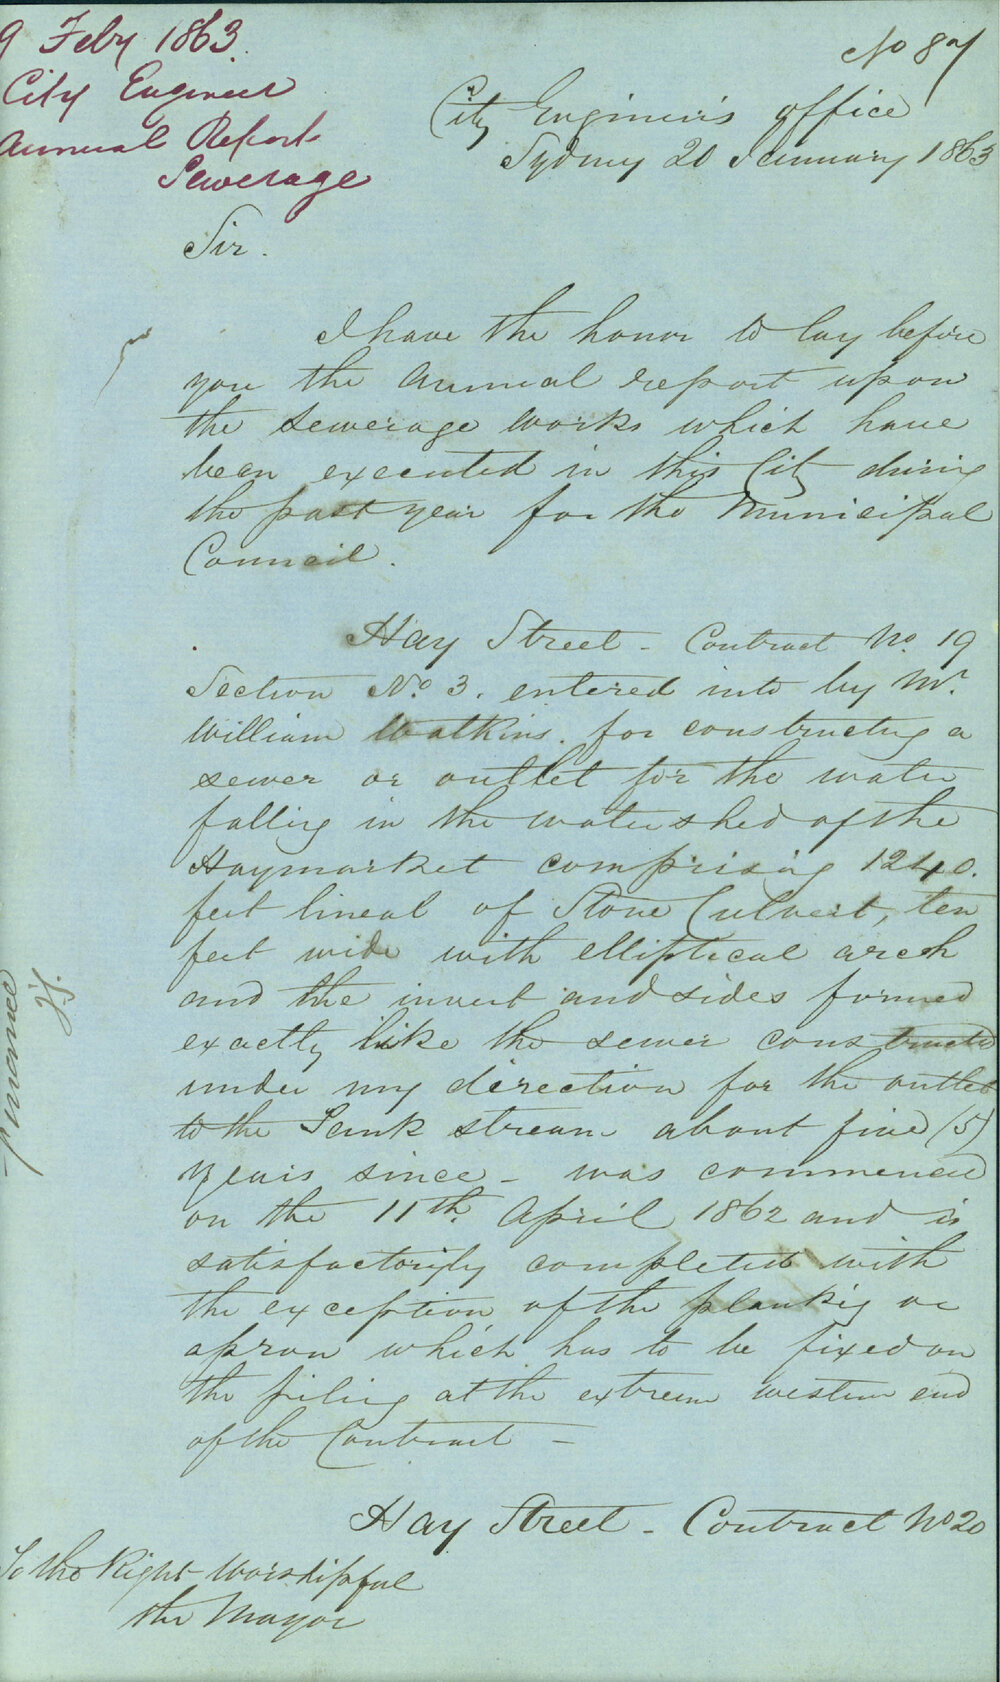 9 Feby 1863.
City Engineer
Annual Report
Sewerage
No 87
City Engineer's office
Sydney 20 January 1863
Sir.
I have the honor to lay before
you the Annual report upon
the sewerage works which have
been executed in this City during
the past year for the Municipal
Council.
Hay Street - Contract No. 19
Section No. 3. entered into by Mr.
William Watkins. for constructing a
sewer or outlet for the water
falling in the watershed of the
Haymarket comprising 1240.
feet lineal of Stone Culvert, ten
feet wide with elliptical arch
and the invert and sides formed
exactly like the sewer constructed
under my direction for the outlet
to the Tank stream about five (5)
years since - was commenced
on the 11th. April 1862 and is
satisfactorily completed with
the exception of the planking or
apron which has to be fixed on
the piling at the extreme western end
of the Contract -
Hay Street - Contract No 20
To the Right Worshipful
the Mayor